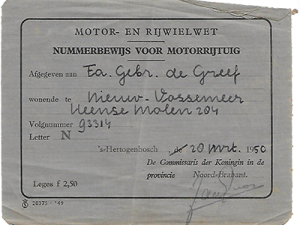 MOTOR- EN RIJWIELWET
NUMMERBEWIJS VOOR MOTORRIJTUIG
Afgegeven aan Fa. Gebr. de Greef
wonende te Nieuw-Vossemeer
Heense Molen 204
Volgnummer 93314
Letter N
's-Hertogenbosch, de 20 Mrt. 1950
De Commissaris der Koningin in de
provincie Noord-Brabant.
Leges f 2,50